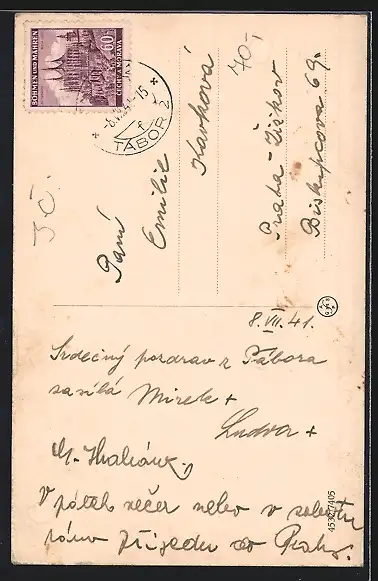 BÖHMEN UND MÄHREN
60
ČECHY A MORAVA
TÁBOR 2
70,-
Paní
Emilie
Karková
Praha - Žižkov
Biskupcova 69.
8. VII. 41.
Srdečný pozdrav z Tábora
zasílá Mirek +
Ludva +
V pátek večer nebo v sobotu
ráno přijedu do Prahy.
45327405